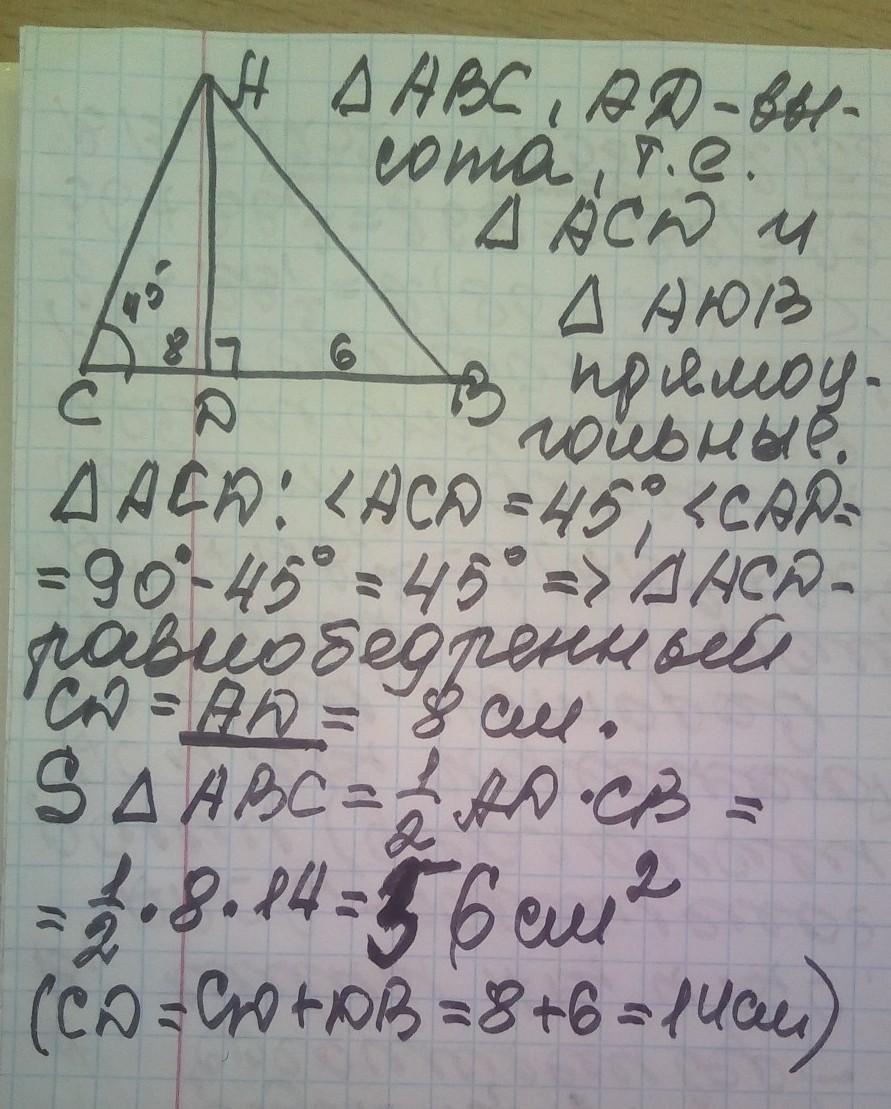 A
△ ABC, AD - вы-
сота, т.е.
△ ACD и
△ AЮB
прямоу-
гольные.
45°
8
6
C
D
B
△ ACD: <ACD = 45°, <CAD=
= 90° - 45° = 45° => △ ACD -
равнобедренный
CD = AD = 8 см.
S △ ABC = 1/2 AD · CB =
= 1/2 · 8 · 14 = 56 см²
(CD = CD + DB = 8 + 6 = 14 см)